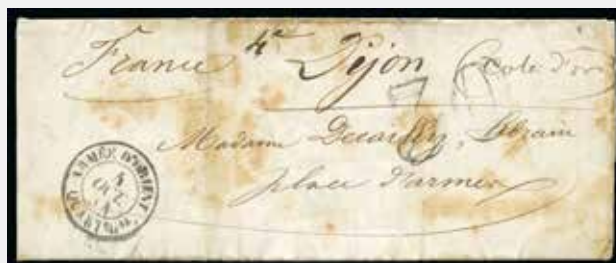 France 4e Dijon (Cote d'or)
30
Madame Decailly, Libraire
place d'armes
ARMÉE D'ORIENT
4
OCT.